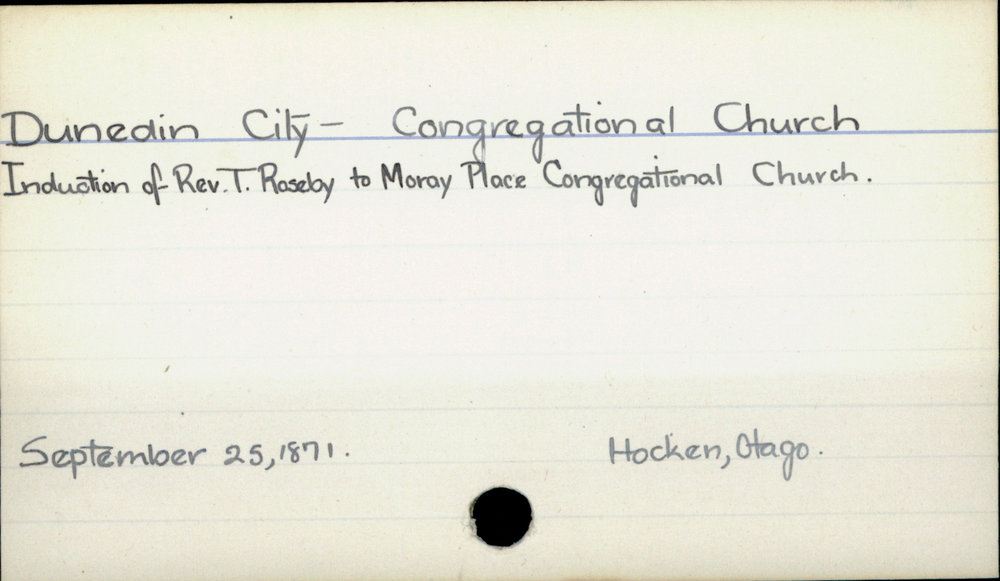 Dunedin City - Congregational Church
Induction of Rev. T. Roseby to Moray Place Congregational Church.
September 25, 1871. Hocken, Otago.